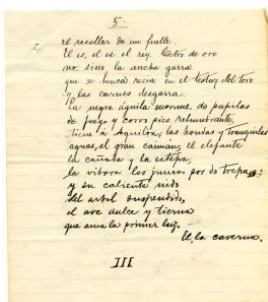 5.
el resollar de un fuelle.
El es, él es el rey. Cetro de oro
no, sino la ancha garra
que se hinca recia en el testuz del toro
y las carnes desgarra.
La negra águila enorme, de pupilas
de fuego y corvo pico relumbrante,
tiene á Aquilón; las hondas y tranquilas
aguas, el gran caiman; el elefante
la cañada y la estepa;
la víbora los juncos por do trepa;
y su caliente nido
del arbol suspendido,
el ave dulce y tierna
que ama la primer luz.
El, la caverna.
III